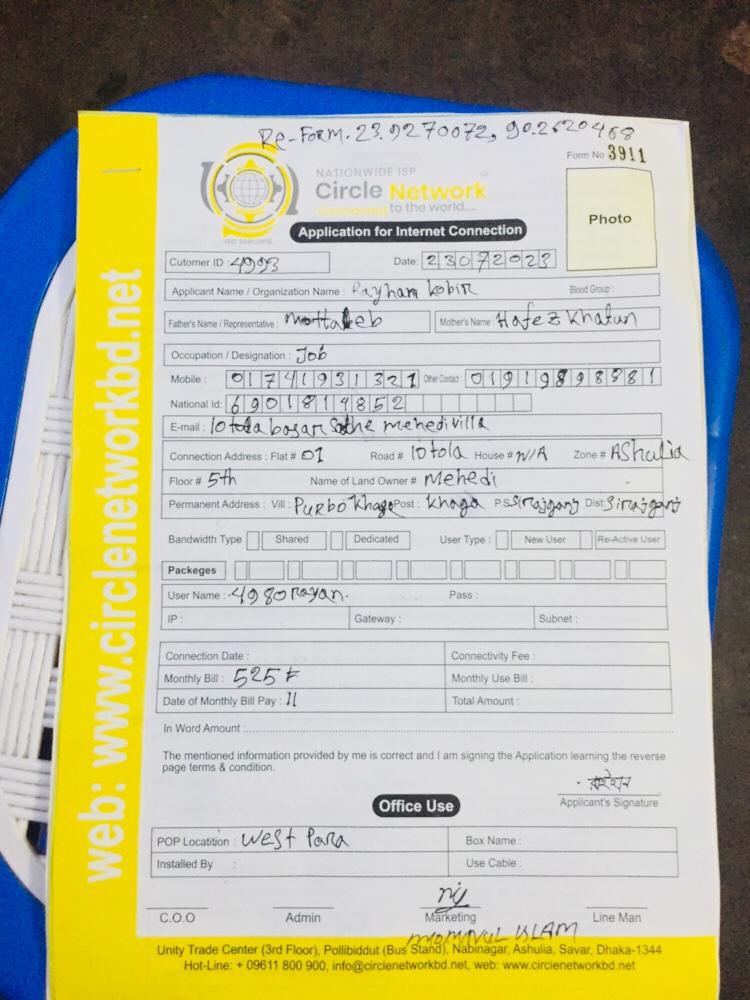 Re-Form. 23.9270072, 90.2620468
Form No 3911
NATIONWIDE ISP
Circle Network
Connected to the world....
ISO 9001:2015
Photo
Application for Internet Connection
Cutomer ID : 4993 Date: 23072023
Applicant Name / Organization Name : Rayhan kobir Blood Group :
Father's Name / Representative : Mottaleb Mother's Name : Hafez Khatun
Occupation / Designation : Job
Mobile : 01741931321 Other Contact : 01919898881
National Id: 6901814852
E-mail : 10tola basar Sathe mehedi villa
Connection Address : Flat # 01 Road # 10 tola House # N/A Zone # AShulia
Floor # 5th Name of Land Owner # Mehedi
Permanent Address : Vill : Purbo Khaga Post : Khaga P.S Sirajganj Dist: Sirajganj
Bandwidth Type Shared Dedicated User Type : New User Re-Active User
Packeges
User Name : 4980rayan. Pass :
IP : Gateway : Subnet :
Connection Date : Connectivity Fee :
Monthly Bill : 525 ৳ Monthly Use Bill :
Date of Monthly Bill Pay : 11 Total Amount :
In Word Amount :
The mentioned information provided by me is correct and I am signing the Application learning the reverse
page terms & condition.
রাইহান
Applicant's Signature
Office Use
POP Locatition : West Para Box Name :
Installed By : Use Cable :
C.O.O Admin Marketing Line Man
MOMINUL ISLAM
Unity Trade Center (3rd Floor), Pollibiddut (Bus Stand), Nabinagar, Ashulia, Savar, Dhaka-1344
Hot-Line: + 09611 800 900, info@circlenetworkbd.net, web: www.circlenetworkbd.net
web: www.circlenetworkbd.net